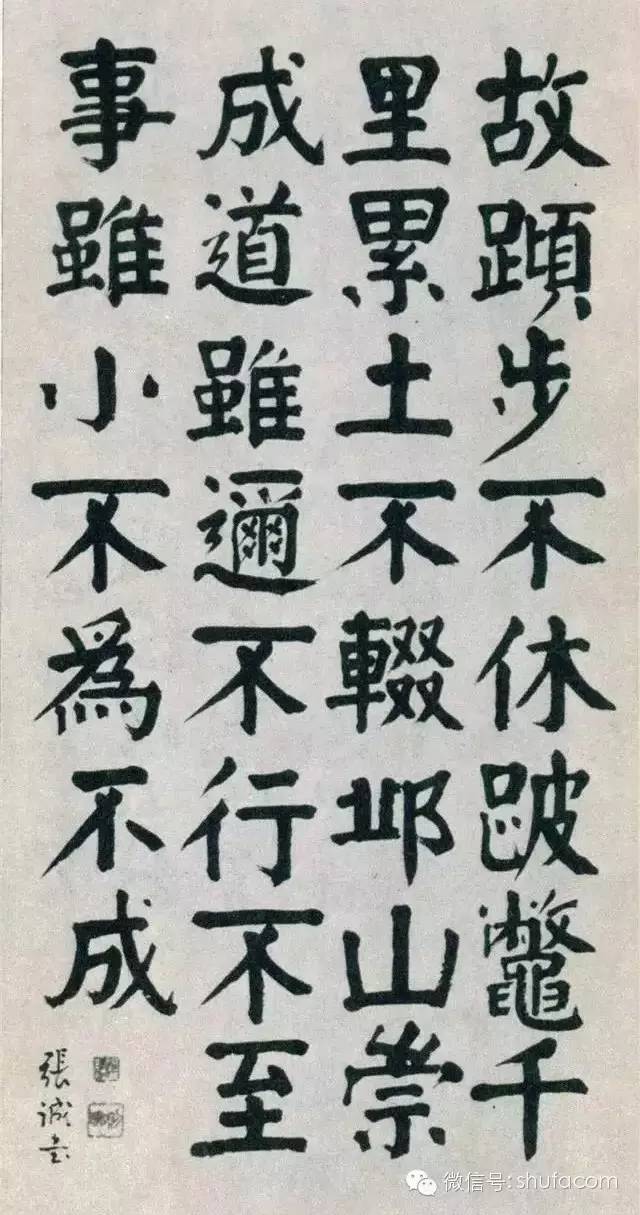 故蹞步不休跛鼈千
里累土不輟邱山崇
成道雖邇不行不至
事雖小不爲不成
張誠書
微信号: shufacom